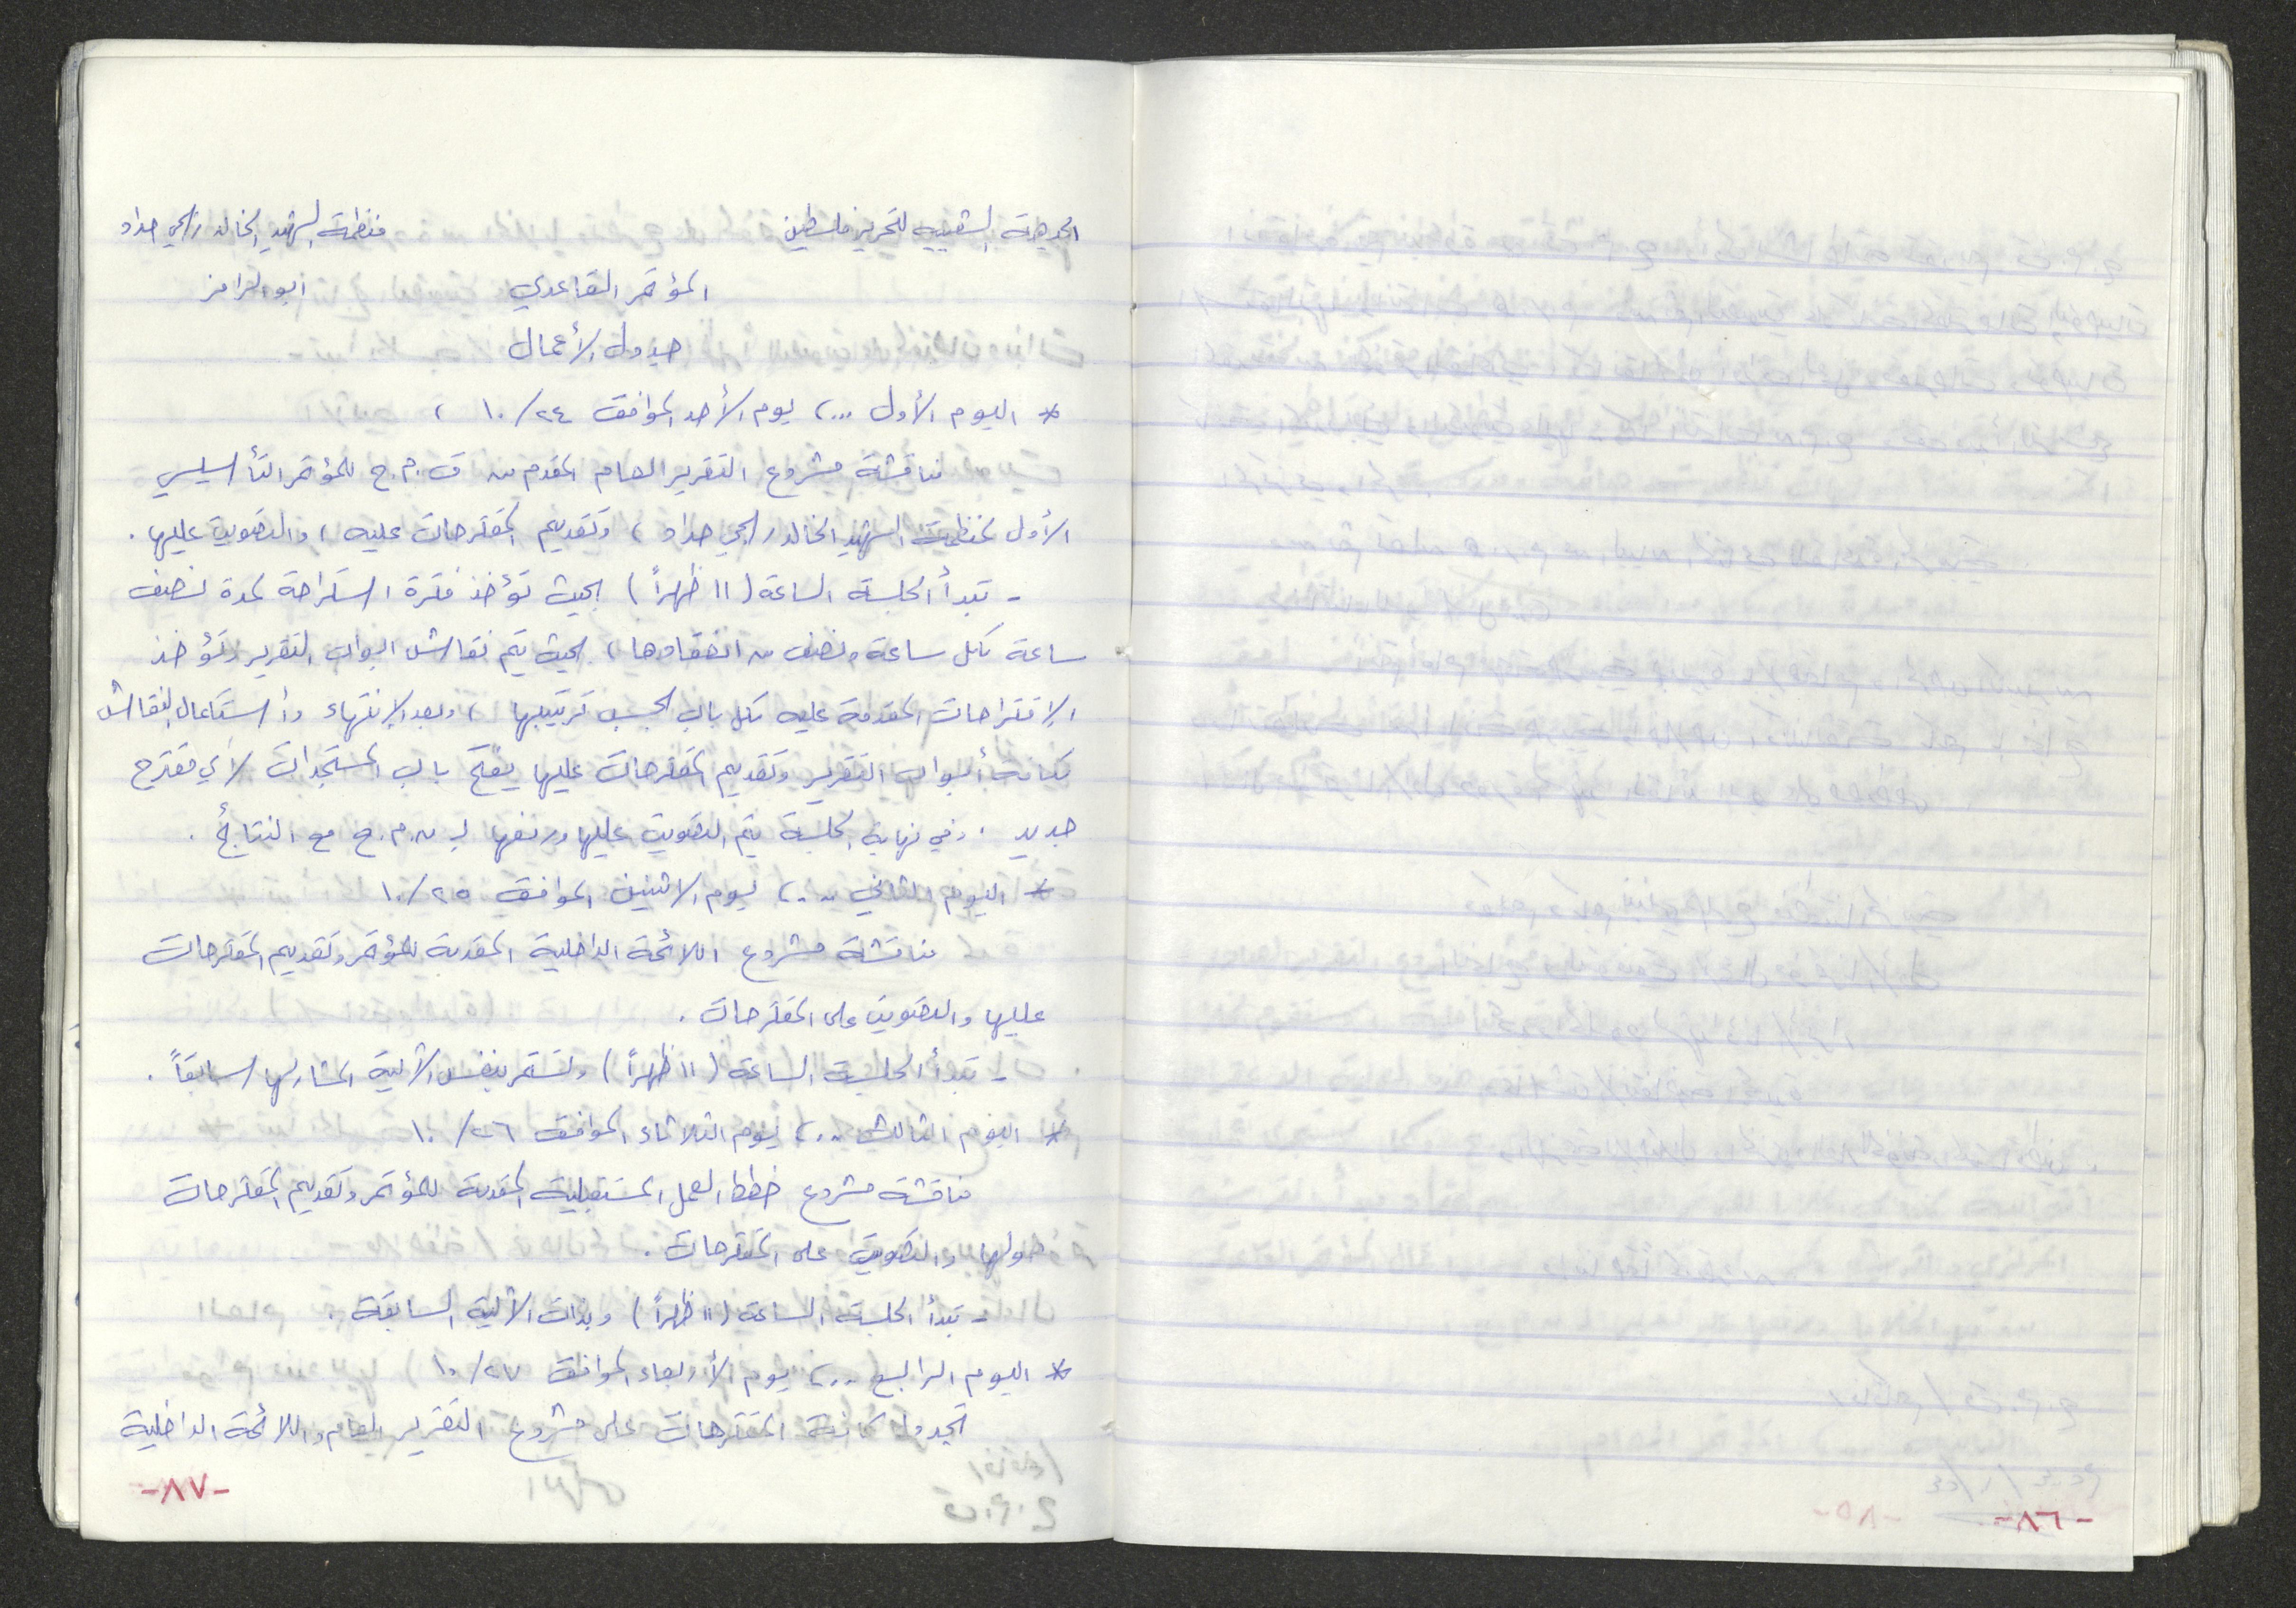 -٨٦-
الجبهة الشعبية لتحرير فلسطين منظمة الشهيد الخالد راجي حداد
المؤتمر القاعدي أبو الرامز
جدول الأعمال
* اليوم الأول ...، يوم الأحد الموافق ٢٤/١٠ ،
مناقشة مشروع التقرير العام المقدم من ق.م.ج للمؤتمر التأسيسي
الأول لمنظمة الشهيد الخالد راجي حداد ، وتقديم المقترحات عليه ، والتصويت عليها .
- تبدأ الجلسة الساعة (١١ ظهراً) بحيث تؤخذ فترة استراحة لمدة نصف
ساعة لكل ساعة ونصف من انعقادها ، بحيث يتم نقاش ابواب التقرير وتؤخذ
الإقتراحات المقدمة عليه لكل باب بحسب ترتيبها ، وبعد الإنتهاء وأستكمال النقاش
لكافة أبواب التقرير وتقديم المقترحات عليها يفتح باب المستجدات لأي مقترح
جديد . وفي نهاية الجلسة يتم التصويت عليها ورفعها لـ ل.م.ج مع النتائج .
* اليوم الثاني ...، يوم الاثنين الموافق ٢٥/١٠
مناقشة مشروع اللائحة الداخلية المقدمة للمؤتمر وتقديم المقترحات
عليها والتصويت على المقترحات .
- تبدأ الجلسة الساعة (١١ ظهراً) وتستمر بنفس الآلية المشار لها سابقاً .
* اليوم الثالث ...، يوم الثلاثاء الموافق ٢٦/١٠
مناقشة مشروع خطط العمل المستقبلية المقدمة للمؤتمر وتقديم المقترحات
حولها والتصويت على المقترحات .
- تبدأ الجلسة الساعة (١١ ظهراً) وبذات الآلية السابقة .
* اليوم الرابع ...، يوم الأربعاء الموافق ٢٧/١٠
تجدول كافة المقترحات على مشروع التقرير العام واللائحة الداخلية
-٨٧-